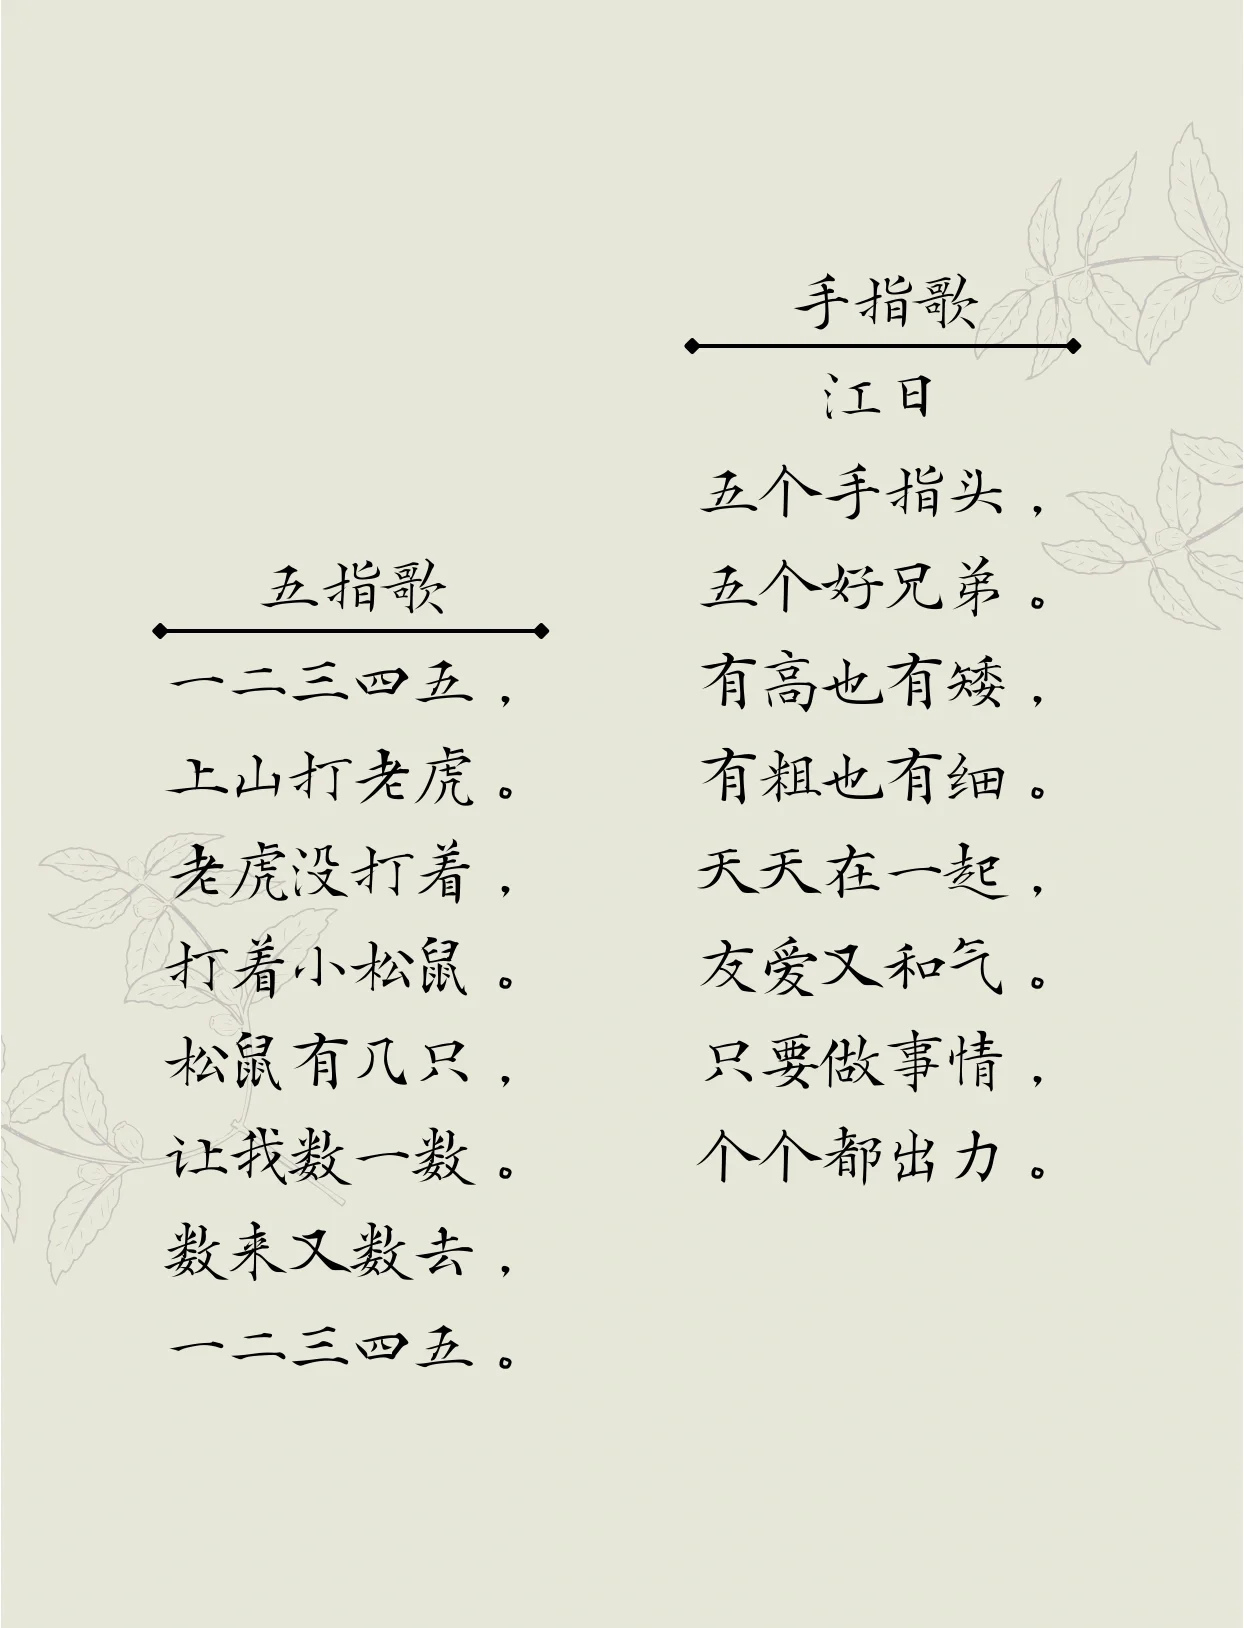 手指歌
江日
五个手指头，
五个好兄弟。
有高也有矮，
有粗也有细。
天天在一起，
友爱又和气。
只要做事情，
个个都出力。
五指歌
一二三四五，
上山打老虎。
老虎没打着，
打着小松鼠。
松鼠有几只，
让我数一数。
数来又数去，
一二三四五。